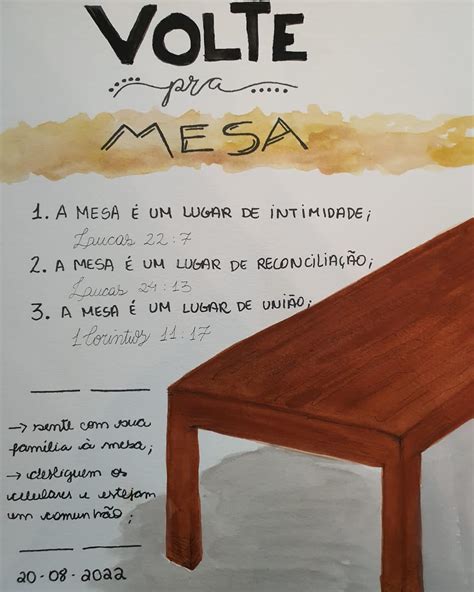 VOLTE
pra
MESA
1. A MESA É UM LUGAR DE INTIMIDADE;
Lucas 22:7
2. A MESA É UM LUGAR DE RECONCILIAÇÃO;
Lucas 24:13
3. A MESA É UM LUGAR DE UNIÃO;
1 Coríntios 11:17
→ sente com sua
família à mesa;
→ desliguem os
celulares e estejam
em comunhão;
20-08-2022